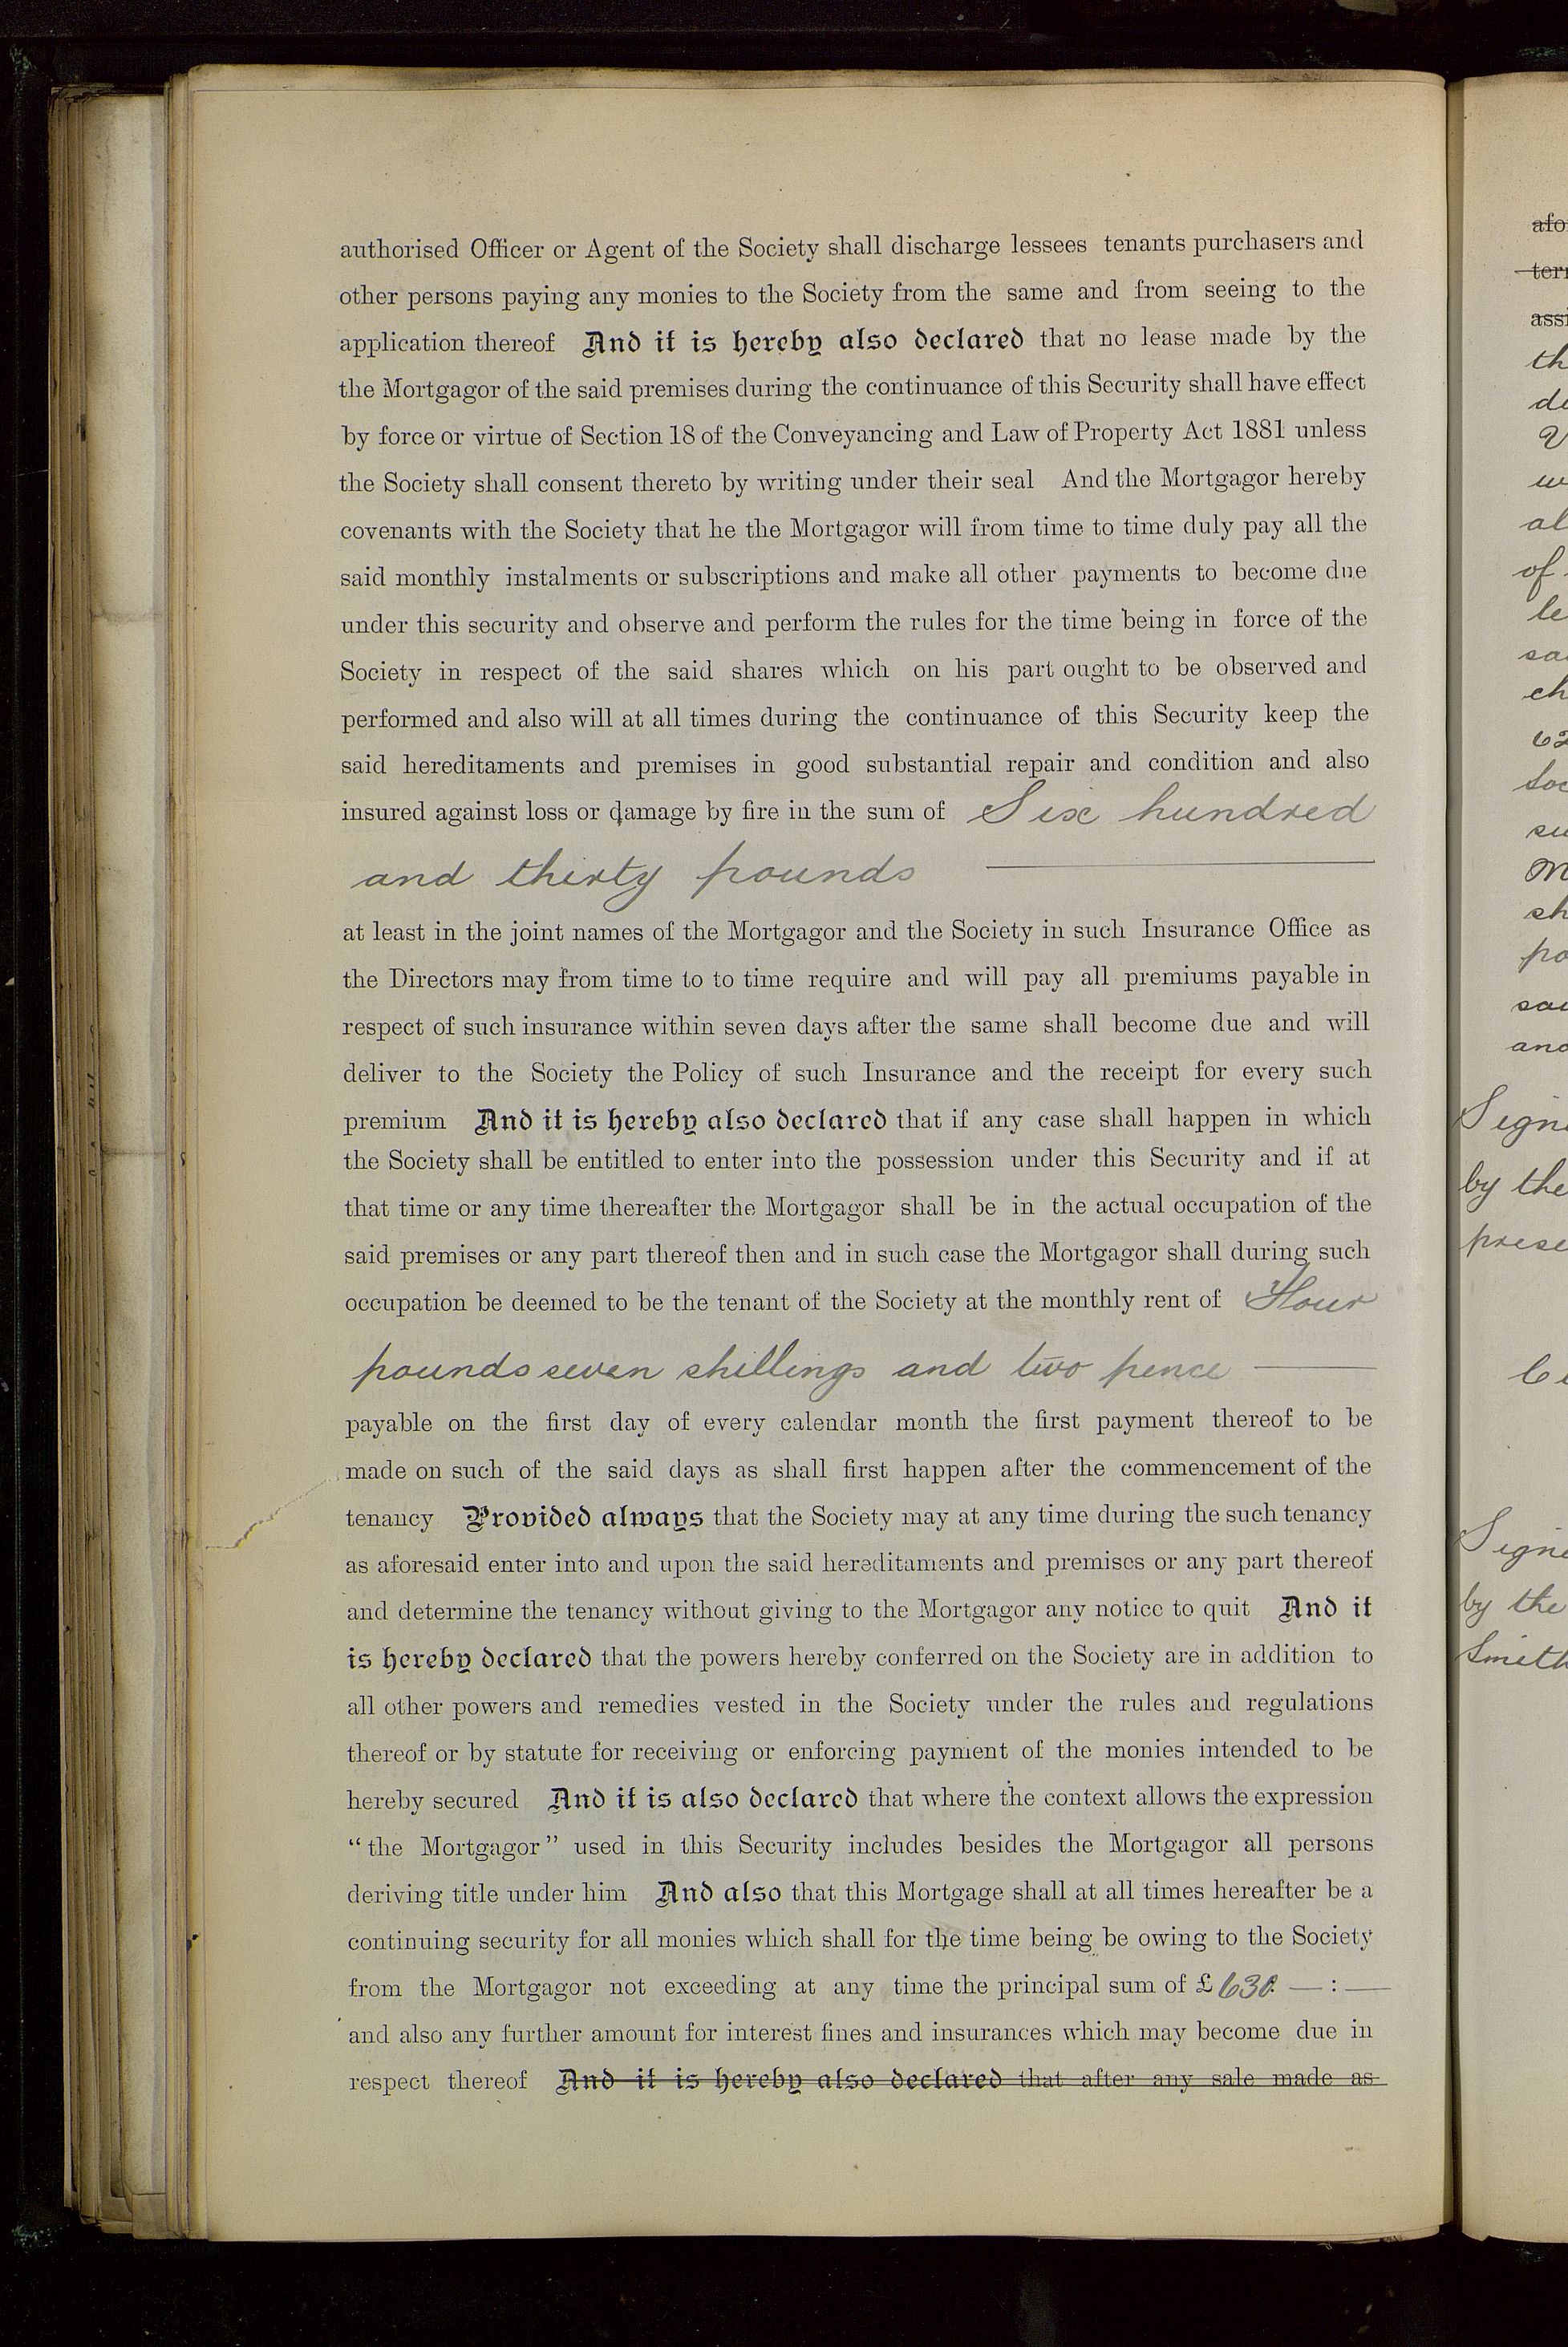 authorised Officer or Agent of the Society shall discharge lessees tenants purchasers and
other persons paying any monies to the Society from the same and from seeing to the
application thereof And it is hereby also declared that no lease made by the
the Mortgagor of the said premises during the continuance of this Security shall have effect
by force or virtue of Section 18 of the Conveyancing and Law of Property Act 1881 unless
the Society shall consent thereto by writing under their seal And the Mortgagor hereby
covenants with the Society that he the Mortgagor will from time to time duly pay all the
said monthly instalments or subscriptions and make all other payments to become due
under this security and observe and perform the rules for the time being in force of the
Society in respect of the said shares which on his part ought to be observed and
performed and also will at all times during the continuance of this Security keep the
said hereditaments and premises in good substantial repair and condition and also
insured against loss or damage by fire in the sum of Six hundred
and thirty pounds
at least in the joint names of the Mortgagor and the Society in such Insurance Office as
the Directors may from time to to time require and will pay all premiums payable in
respect of such insurance within seven days after the same shall become due and will
deliver to the Society the Policy of such Insurance and the receipt for every such
premium And it is hereby also declared that if any case shall happen in which
the Society shall be entitled to enter into the possession under this Security and if at
that time or any time thereafter the Mortgagor shall be in the actual occupation of the
said premises or any part thereof then and in such case the Mortgagor shall during such
occupation be deemed to be the tenant of the Society at the monthly rent of Four
pounds seven shillings and two pence
payable on the first day of every calendar month the first payment thereof to be
made on such of the said days as shall first happen after the commencement of the
tenancy Provided always that the Society may at any time during the such tenancy
as aforesaid enter into and upon the said hereditaments and premises or any part thereof
and determine the tenancy without giving to the Mortgagor any notice to quit And it
is hereby declared that the powers hereby conferred on the Society are in addition to
all other powers and remedies vested in the Society under the rules and regulations
thereof or by statute for receiving or enforcing payment of the monies intended to be
hereby secured And it is also declared that where the context allows the expression
“the Mortgagor” used in this Security includes besides the Mortgagor all persons
deriving title under him And also that this Mortgage shall at all times hereafter be a
continuing security for all monies which shall for the time being be owing to the Society
from the Mortgagor not exceeding at any time the principal sum of £630. — : —
and also any further amount for interest fines and insurances which may become due in
respect thereof And it is hereby also declared that after any sale made as
Signe
by the
prese
Signe
by the
Smith